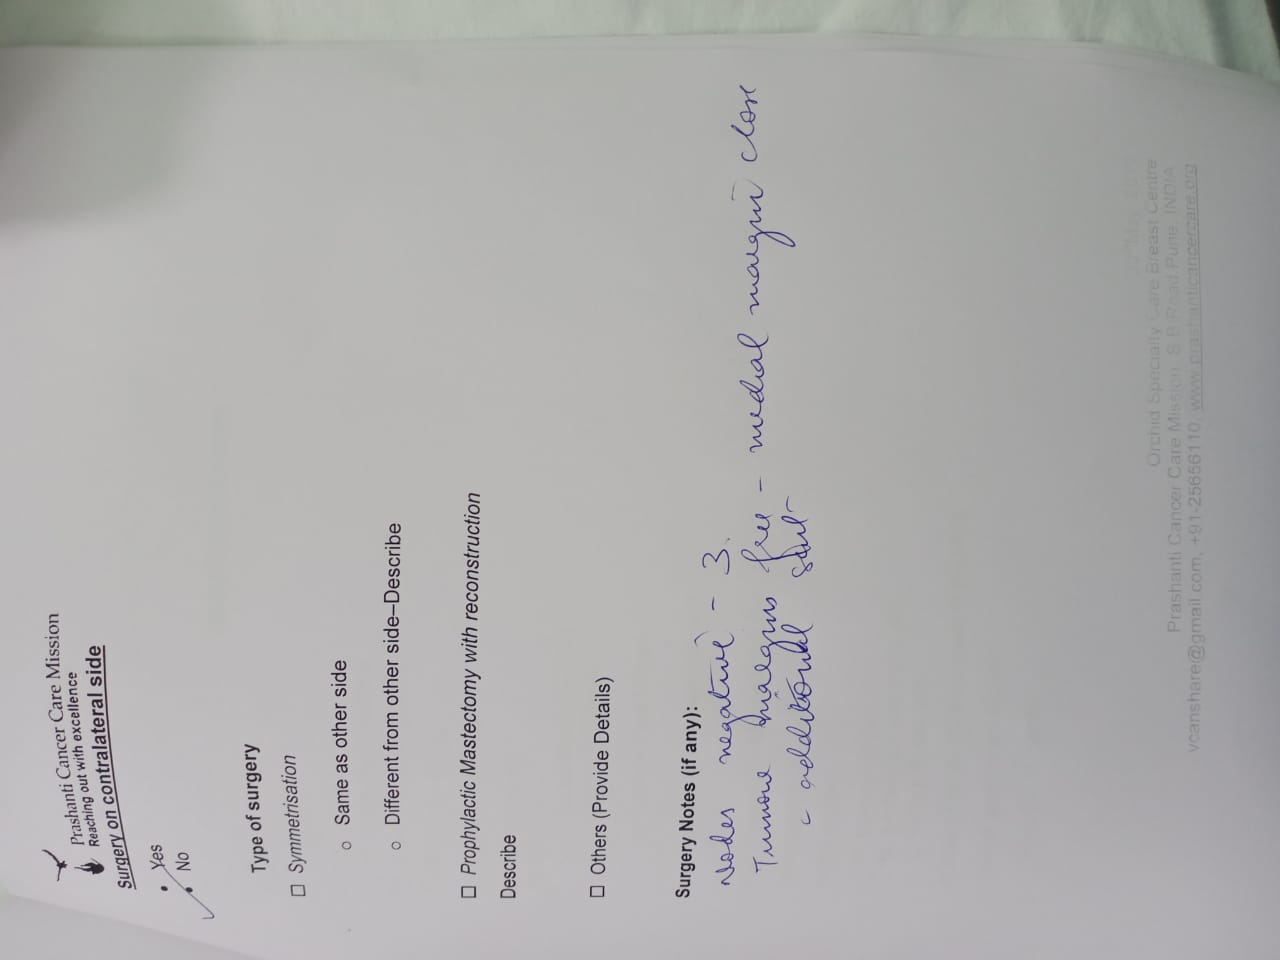 Prashanti Cancer Care Mission
Reaching out with excellence
Surgery on contralateral side
• Yes
• No
Type of surgery
☐ Symmetrisation
○ Same as other side
○ Different from other side–Describe
☐ Prophylactic Mastectomy with reconstruction
Describe
☐ Others (Provide Details)
Surgery Notes (if any):
Nodes negative - 3.
Tumour margins free - medial margin close
additional
Orchid Specialty Care Breast Centre
Prashanti Cancer Care Mission, S B Road Pune, INDIA
vcanshare@gmail.com, +91-25656110, www.prashanticancercare.org